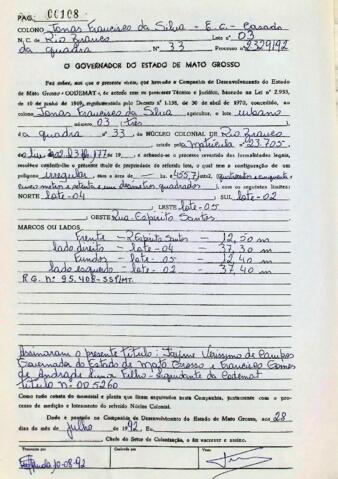 PAG. 00108
COLONO Jonas Francisco da Silva - E.C. - Casado
N. C. de Rio Branco Lote n.o 03
da quadra N.o 33 Processo n.o 2329/92
O GOVERNADOR DO ESTADO DE MATO GROSSO
Faz saber, aos que o presente virem, que havendo a Companhia de Desenvolvimento do Estado
de Mato Grosso - CODEMAT -, de acordo com os pareceres Técnico e Jurídico, baseado na Lei n.o 2.933,
de 10 de junho de 1969, regulamentada pelo Decreto n.o 1.138, de 30 de abril de 1970, concedido, ao
colono Jonas Francisco da Silva agricultor, o lote urbano
número 03 (três)
da quadra n.o 33, do NÚCLEO COLONIAL DE Rio Branco
criado pela Matrícula nº 23.705
do livro 2 fl. 177 de 19 , e achando-se o processo revestido das formalidades legais,
resolveu conferir-lhe o presente título de propriedade do referido lote, o qual tem a configuração de um
polígono irregular com a área de ha. 455,71 (quatrocentos e cinquenta e
cinco metros e setenta e um decímetros quadrados), com os seguintes limites:
NORTE lote-04 SUL lote-02
LESTE lote-05
OESTE Rua Espírito Santos
MARCOS OU LADOS
Frente - R. Espírito Santos - 12,50 m
lado direito - lote-04 - 37,30 m
Fundos - lote-05 - 12,40 m
lado esquerdo - lote-02 - 37,40 m
R.G. nº 95.408-SSP/MT.
Assinaram o presente Título: Jayme Veríssimo de Campos
Governador do Estado de Mato Grosso e Francisco Gomes
de Andrade Lima Filho - Liquidante da Codemat
Título Nº 005260
Como tudo consta do memorial e planta que ficam arquivados nesta Companhia, juntamente com o pro-
cesso de medição e loteamento do referido Núcleo Colonial.
Dado e passado na Companhia de Desenvolvimento do Estado de Mato Grosso, aos 28
dias do mês de julho de 1992 Eu,
Chefe do Setor de Colonização, o fiz escrever e assino.
10-08-92
Conferido por
Visto